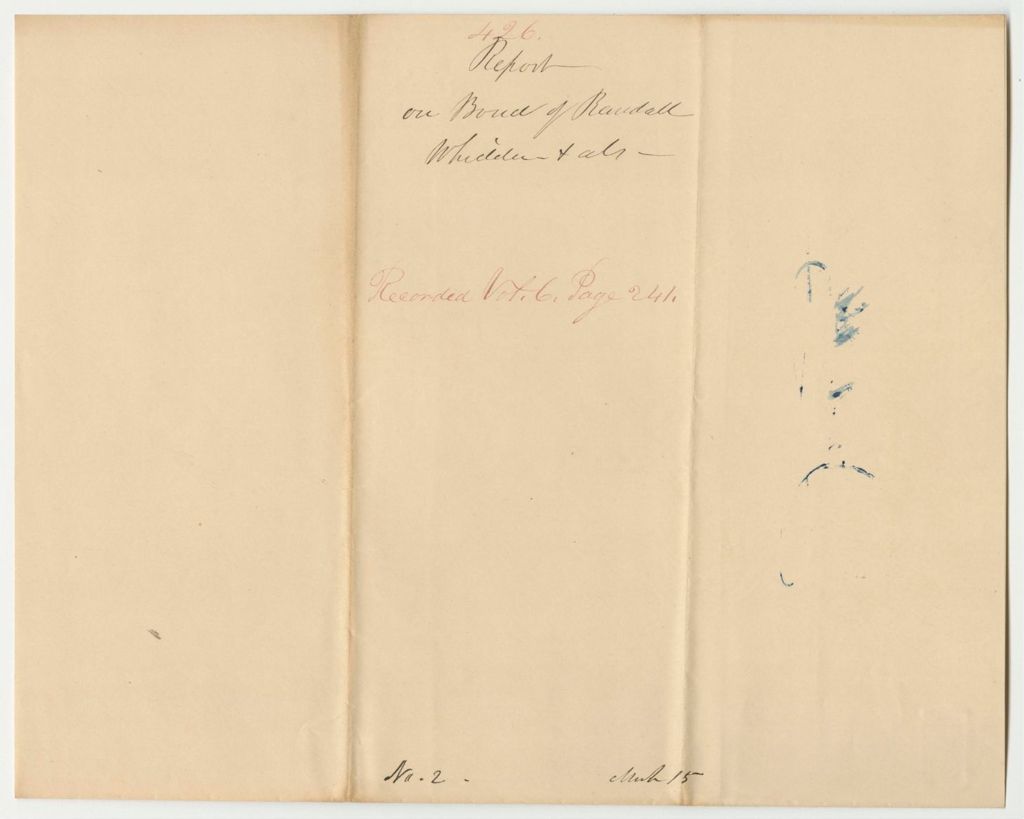 426.
Report
on Bond of Randall
Whidden & als
Recorded Vol. 6. Page 241.
No. 2 -
March 15